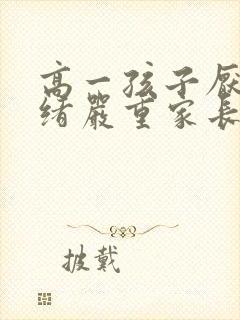 高一孩子厌
绪严重家长
披戴